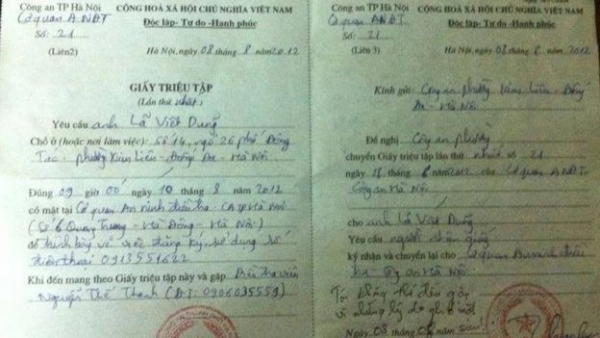 Công an TP Hà Nội
Cơ quan ANĐT
Số: 21
(Liên2)
CỘNG HOÀ XÃ HỘI CHỦ NGHĨA VIỆT NAM
Độc lập- Tự do -Hạnh phúc
Hà Nội, ngày 08 tháng 8 năm 2012
GIẤY TRIỆU TẬP
(Lần thứ nhất)
Yêu cầu anh Lã Việt Dũng
Chỗ ở (hoặc nơi làm việc): Số 14, ngõ 26 phố Đông
Tác - phường Kim Liên - Đống Đa - Hà Nội
Đúng 09 giờ 00 ngày 10 tháng 8 năm 2012
có mặt tại Cơ quan An ninh điều tra - CATP Hà Nội
(Số 6 Quang Trung - Hà Đông - Hà Nội)
để trình bày về việc đăng ký, sử dụng số
điện thoại 0913551622
Khi đến mang theo Giấy triệu tập này và gặp Điều tra viên
Nguyễn Thế Thanh (ĐT: 0906035559)
Công an TP Hà Nội
Cơ quan ANĐT
Số: 21
(Liên 3)
CỘNG HOÀ XÃ HỘI CHỦ NGHĨA VIỆT NAM
Độc lập- Tự do -Hạnh phúc
Hà Nội, ngày 08 tháng 8 năm 2012
Kính gửi: Công an phường Kim Liên - Đống
Đa - Hà Nội
Đề nghị Công an phường
chuyển Giấy triệu tập lần thứ nhất số 21
ngày 8 năm 2012 của Cơ quan ANĐT
Công an Hà Nội
cho anh Lã Việt Dũng
Yêu cầu người nhận giấy
ký nhận và chuyển lại cho Cơ quan An ninh điều
tra Công an Hà Nội
Tôi không thể đến gặp
vì không lý do ghi ở
Ngày 08 tháng 08 năm